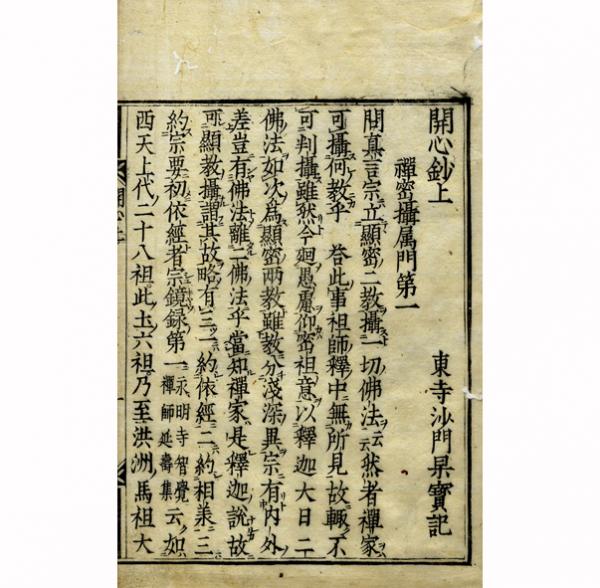 開心鈔上 東寺沙門杲寶記
禪密攝属門第一
問真言宗立顯密二教攝一切佛法云云然者禪家
可攝何教乎 荅此事祖師釋中無所見故輙不
可判攝雖然今廻愚慮仰密祖意以釋迦大日二
佛法如次為顯密兩教雖教分淺深異宗有内外
差豈有佛法離二佛法乎當知禪家是釋迦說故
可顯教攝謂其故略有三一約依經二約相兼三
約宗要初依經者宗鏡録第一永明寺智覺禪師延壽集云如
西天上代二十八祖此土六祖乃至洪洲馬祖大